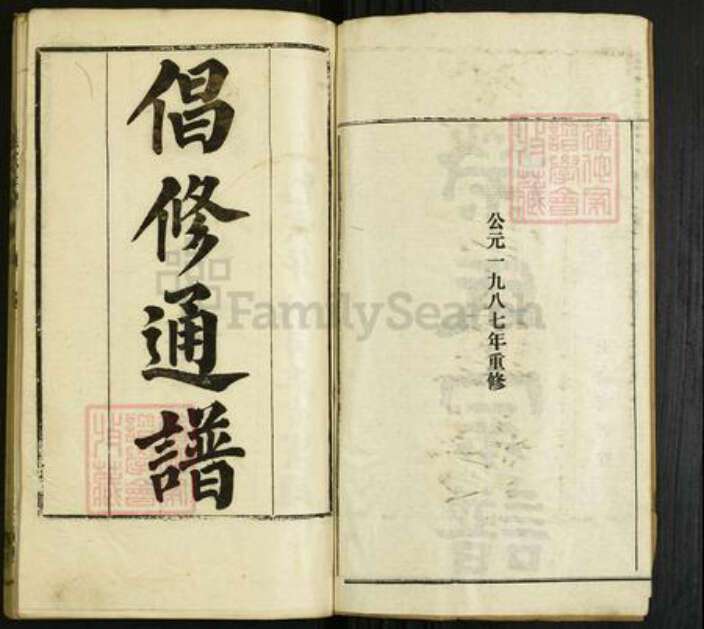 公元一九八七年重修
倡修通譜
FamilySearch